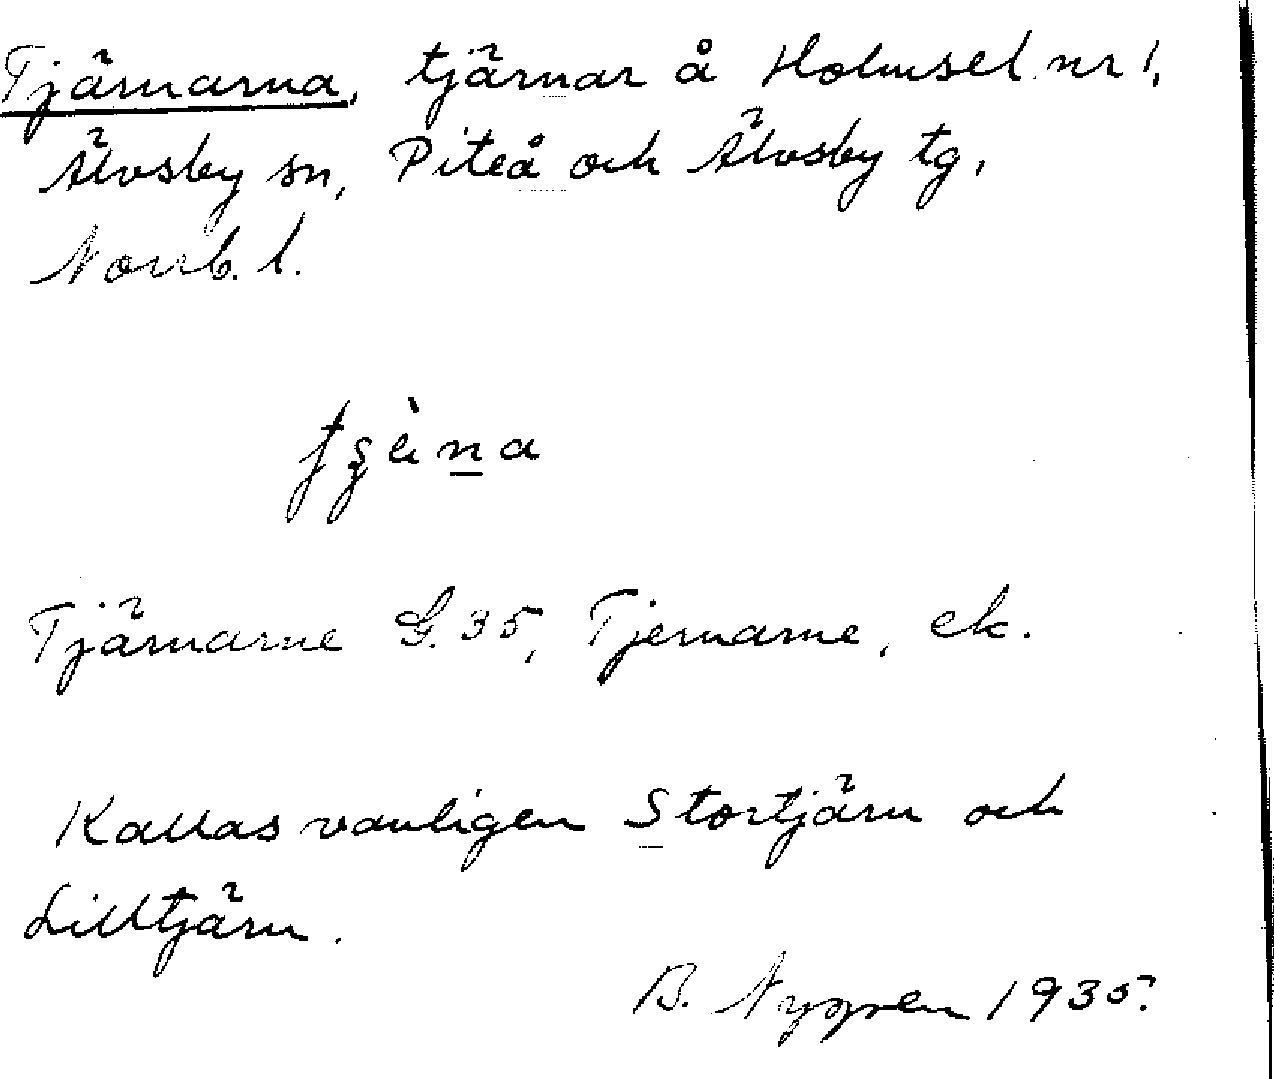 Tjärnarna, tjärnar å Holmsel nr 1,
Älvsby sn, Piteå och Älvsby tg,
Norrb. l.
Tjärnarne G. 35, Tjernarne, ek.
Kallas vanligen Stortjärn och
Lilltjärn.
B. Nygren 1935.